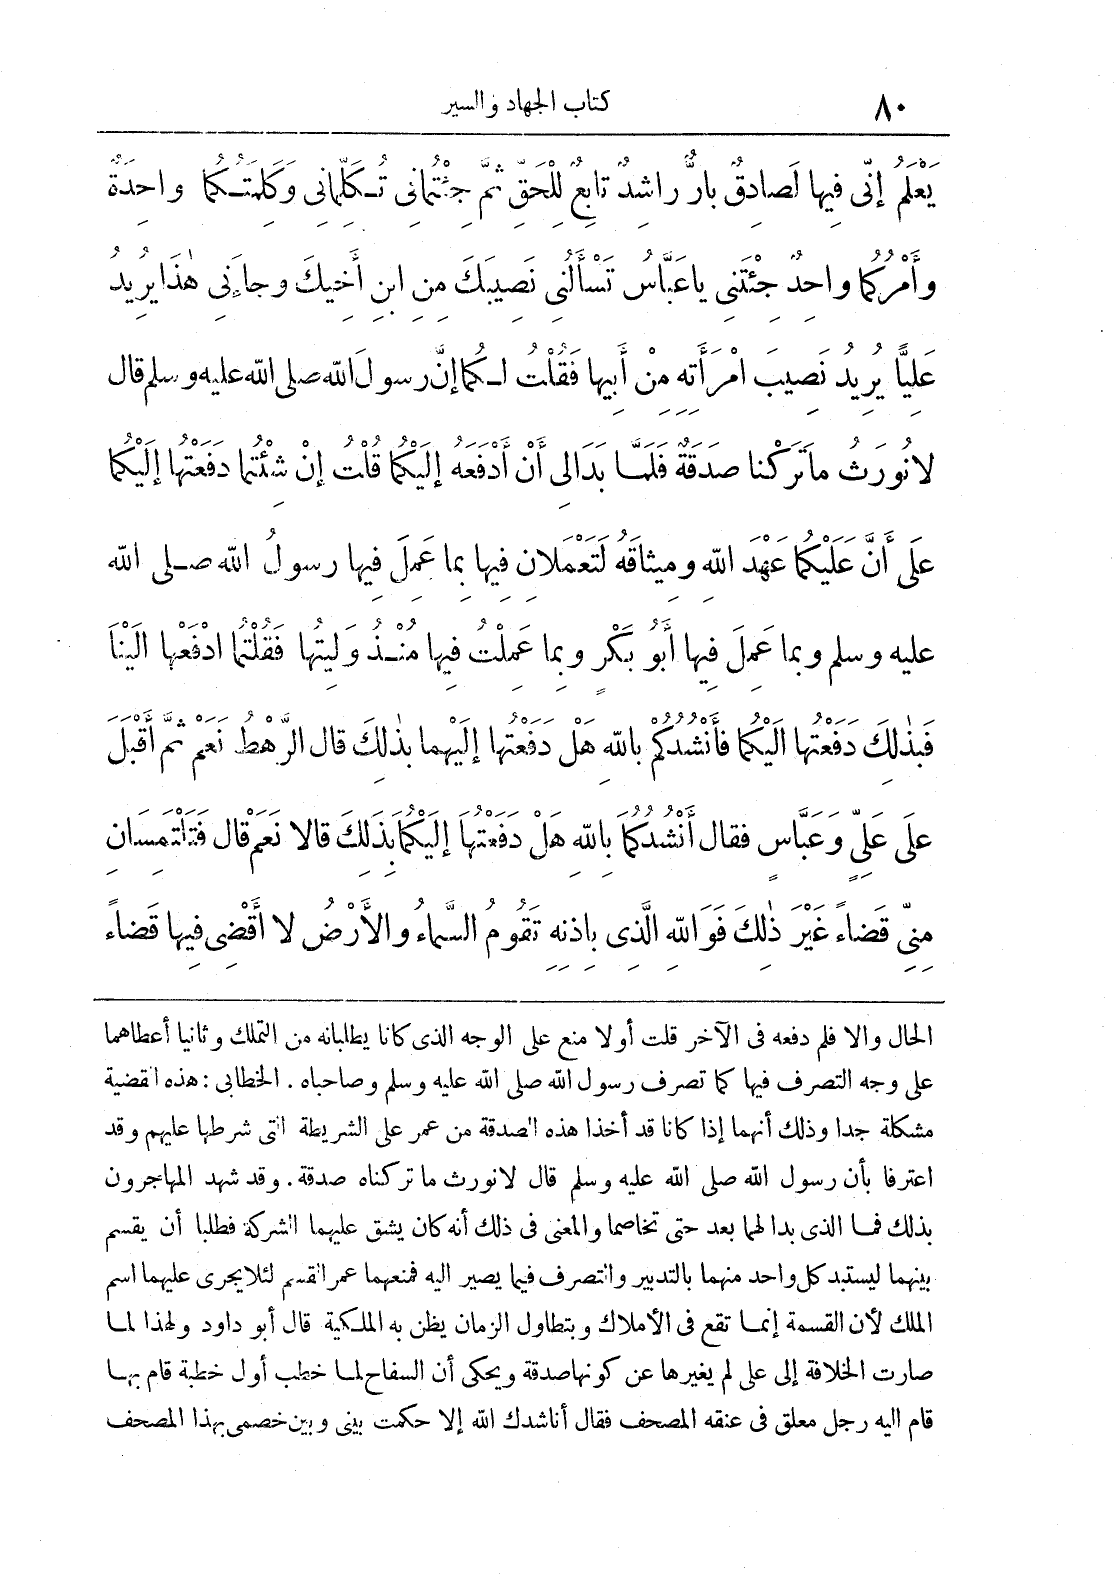 ٨٠
كتاب الجهاد والسير
يَعْلَمُ إِنِّى فِيها لَصادِقٌ بارٌّ راشِدٌ تابِعٌ لِلْحَقِّ ثُمَّ جِئْتُمانِى تُكَلِّمانِى وَكَلِمَتُكُما واحِدَةٌ
وَأَمْرُكُما واحِدٌ جِئْتَنِى ياعَبَّاسُ تَسْأَلُنِى نَصِيبَكَ مِنِ ابنِ أَخِيكَ وجاءَنِى هٰذَا يُرِيدُ
عَلِيًّا يُرِيدُ نَصِيبَ امْرَأَتِهِ مِنْ أَبِيها فَقُلْتُ لَكُما إِنَّ رسولَ اللّه صلى اللّه عليه وسلم قال
لا نُورَثُ ماتَرَكْنا صَدَقَةٌ فَلَمَّا بَدَالِى أَنْ أَدْفَعَهُ إِلَيْكُما قُلْتُ إِنْ شِئْتُما دَفَعْتُها إِلَيْكُما
عَلَى أَنَّ عَلَيْكُما عَهْدَ اللّهِ وِميثاقَهُ لَتَعْمَلانِ فِيها بِما عَمِلَ فِيها رسولُ اللّه صلى اللّه
عليه وسلم وبِما عَمِلَ فِيها أَبُو بَكْرٍ وبِما عَمِلْتُ فِيها مُنْذُ وَلِيتُها فَقُلْتُما ادْفَعْها الَيْنَا
فَبِذٰلِكَ دَفَعْتُها الَيْكُما فَأَنْشُدُكُمْ بِاللّهِ هَلْ دَفَعْتُها إِلَيْهِما بِذٰلِكَ قال الرَّهْطُ نَعَمْ ثُمَّ أَقْبَلَ
عَلَى عَلِيٍّ وَعَبَّاسٍ فقال أَنْشُدُكُمَا بِاللّهِ هَلْ دَفَعْتُهَا إِلَيْكُمَا بِذَلِكَ قالا نَعَمْ قال فَتَلْتَمِسَانِ
مِنِّى قَضاءً غَيْرَ ذٰلِكَ فَوَاللّهِ الَّذِى بِاذنِهِ تَقُومُ السَّماءُ والأَرْضُ لا أَقْضِى فِيها قَضاءً
الحال والا فلم دفعه فى الآخر قلت أولا منع على الوجه الذى كانا يطلبانه من التملك وثانيا أعطاهما
على وجه التصرف فيها كما تصرف رسول اللّه صلى اللّه عليه وسلم وصاحباه . الخطابى : هذه القضية
مشكلة جدا وذلك أنهما إذا كانا قد أخذا هذه الصدقة من عمر على الشريطة التى شرطها عليهم وقد
اعترفا بأن رسول اللّه صلى اللّه عليه وسلم قال لانورث ماتركناه صدقة . وقد شهد المهاجرون
بذلك فما الذى بدا لهما بعد حتى تخاصما والمعنى فى ذلك أنه كان يشق عليهما الشركة فطلبا أن يقسم
بينهما ليستبد كل واحد منهما بالتدبير والتصرف فيما يصير اليه فمنعهما عمر القسم لئلا يجرى عليهما اسم
الملك لأن القسمة إنما تقع فى الأملاك وبتطاول الزمان يظن به الملكية قال أبو داود ولهذا لما
صارت الخلافة إلى على لم يغيرها عن كونها صدقة ويحكى أن السفاح لما خطب أول خطبة قام بها
قام اليه رجل معلق فى عنقه المصحف فقال أناشدك اللّه إلا حكمت بينى وبين خصمى بهذا المصحف